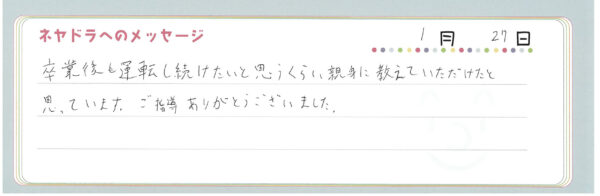 ネヤドラへのメッセージ
1月 27日
卒業後も運転し続けたいと思うくらい親身に教えていただけたと
思っています。ご指導ありがとうございました。